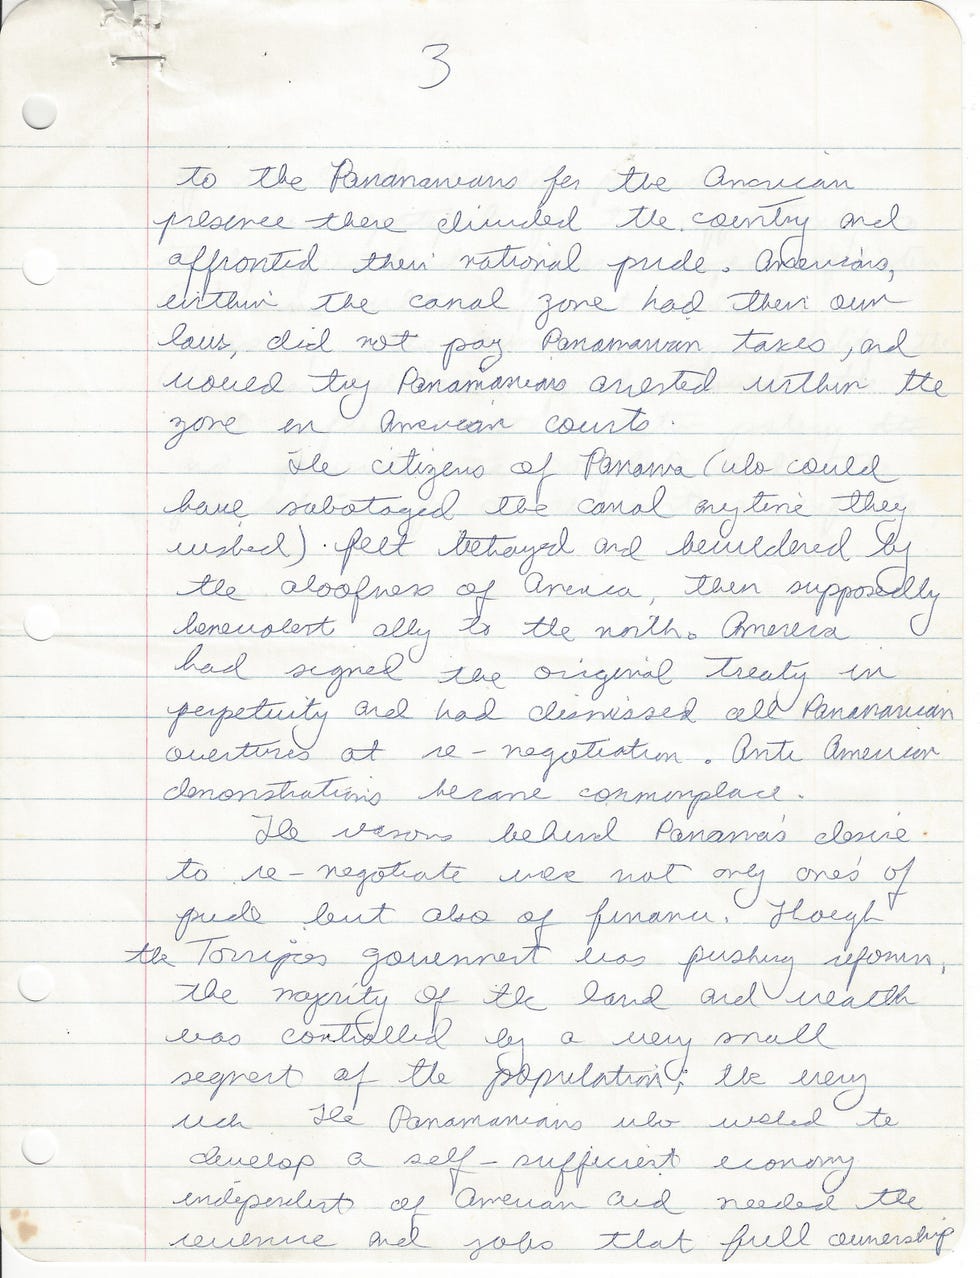 3
to the Panamanians for the American
presence there divided the country and
affronted their national pride. Americans,
within the canal zone had their own
laws, did not pay Panamanian taxes, and
would try Panamanians arrested within the
zone in American courts.
The citizens of Panama (who could
have sabotaged the canal anytime they
wished) felt betrayed and bewildered by
the aloofness of America, their supposedly
benevolent ally to the north. America
had signed the original treaty in
perpetuity and had dismissed all Panamanian
overtures at re-negotiation. Anti American
demonstrations became commonplace.
The reasons behind Panama's desire
to re-negotiate were not only one's of
pride but also of finance. Though
the Torrijos government was pushing reforms,
the majority of the land and wealth
was controlled by a very small
segment of the population; the very
rich The Panamanians who wished to
develop a self-sufficient economy
independent of American aid needed the
revenue and jobs that full ownership